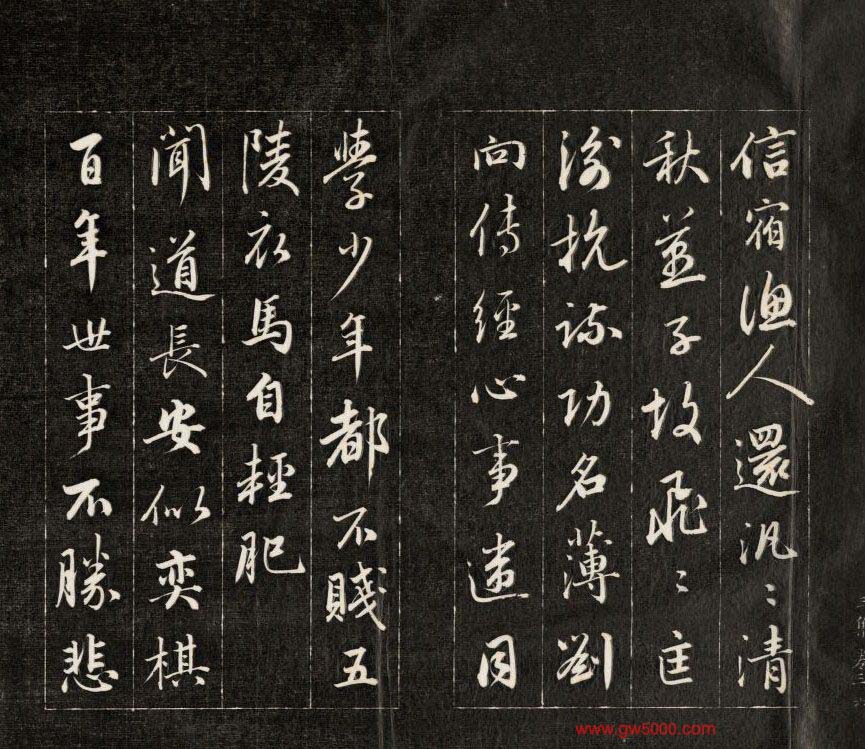 信宿漁人還汎〻清
秋燕子故飛〻匡
衡抗疏功名薄劉
向傳經心事違同
學少年都不賤五
陵衣馬自輕肥
聞道長安似奕棋
百年世事不勝悲
www.gw5000.com